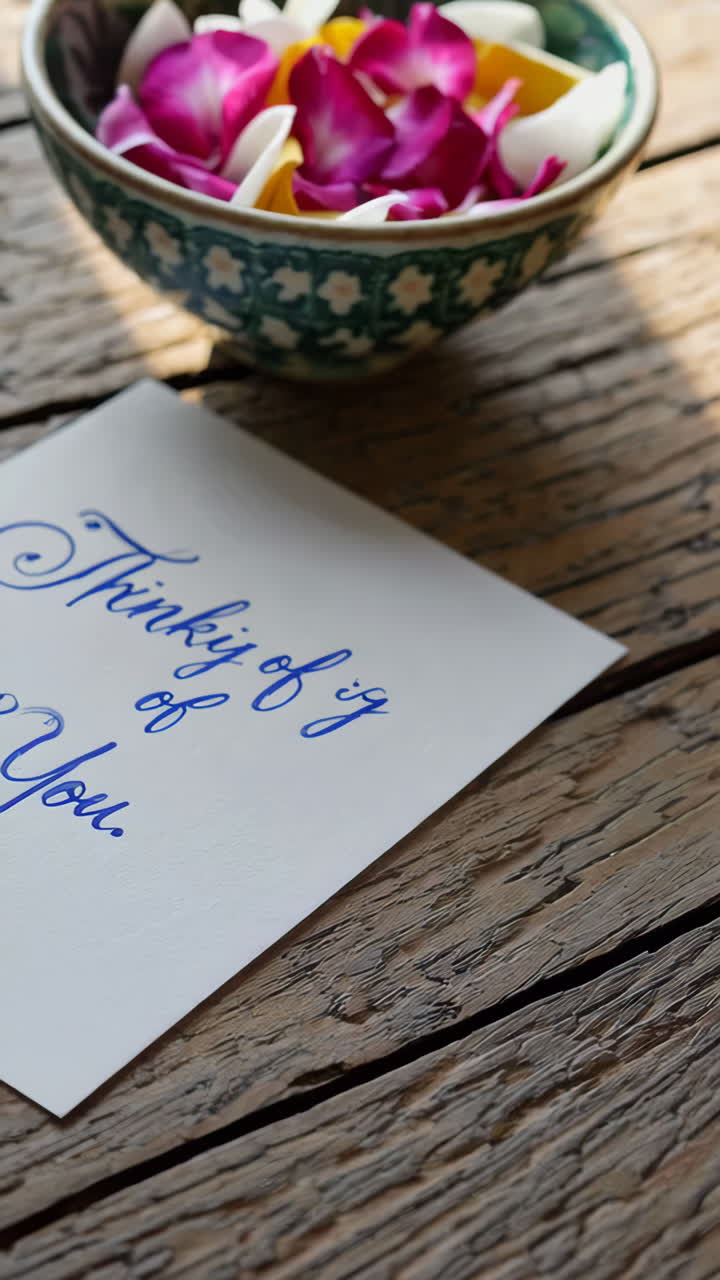 Thinkij of ig
of
You.